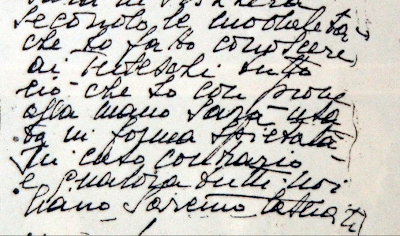 secondo le modalità
che Lo farò conoscere
ai tedeschi tutto
ciò che So con prove
alla mano Sarà usa
ta in forma spietata
In caso contrario
e qualora tutti noi
Siamo Saremo